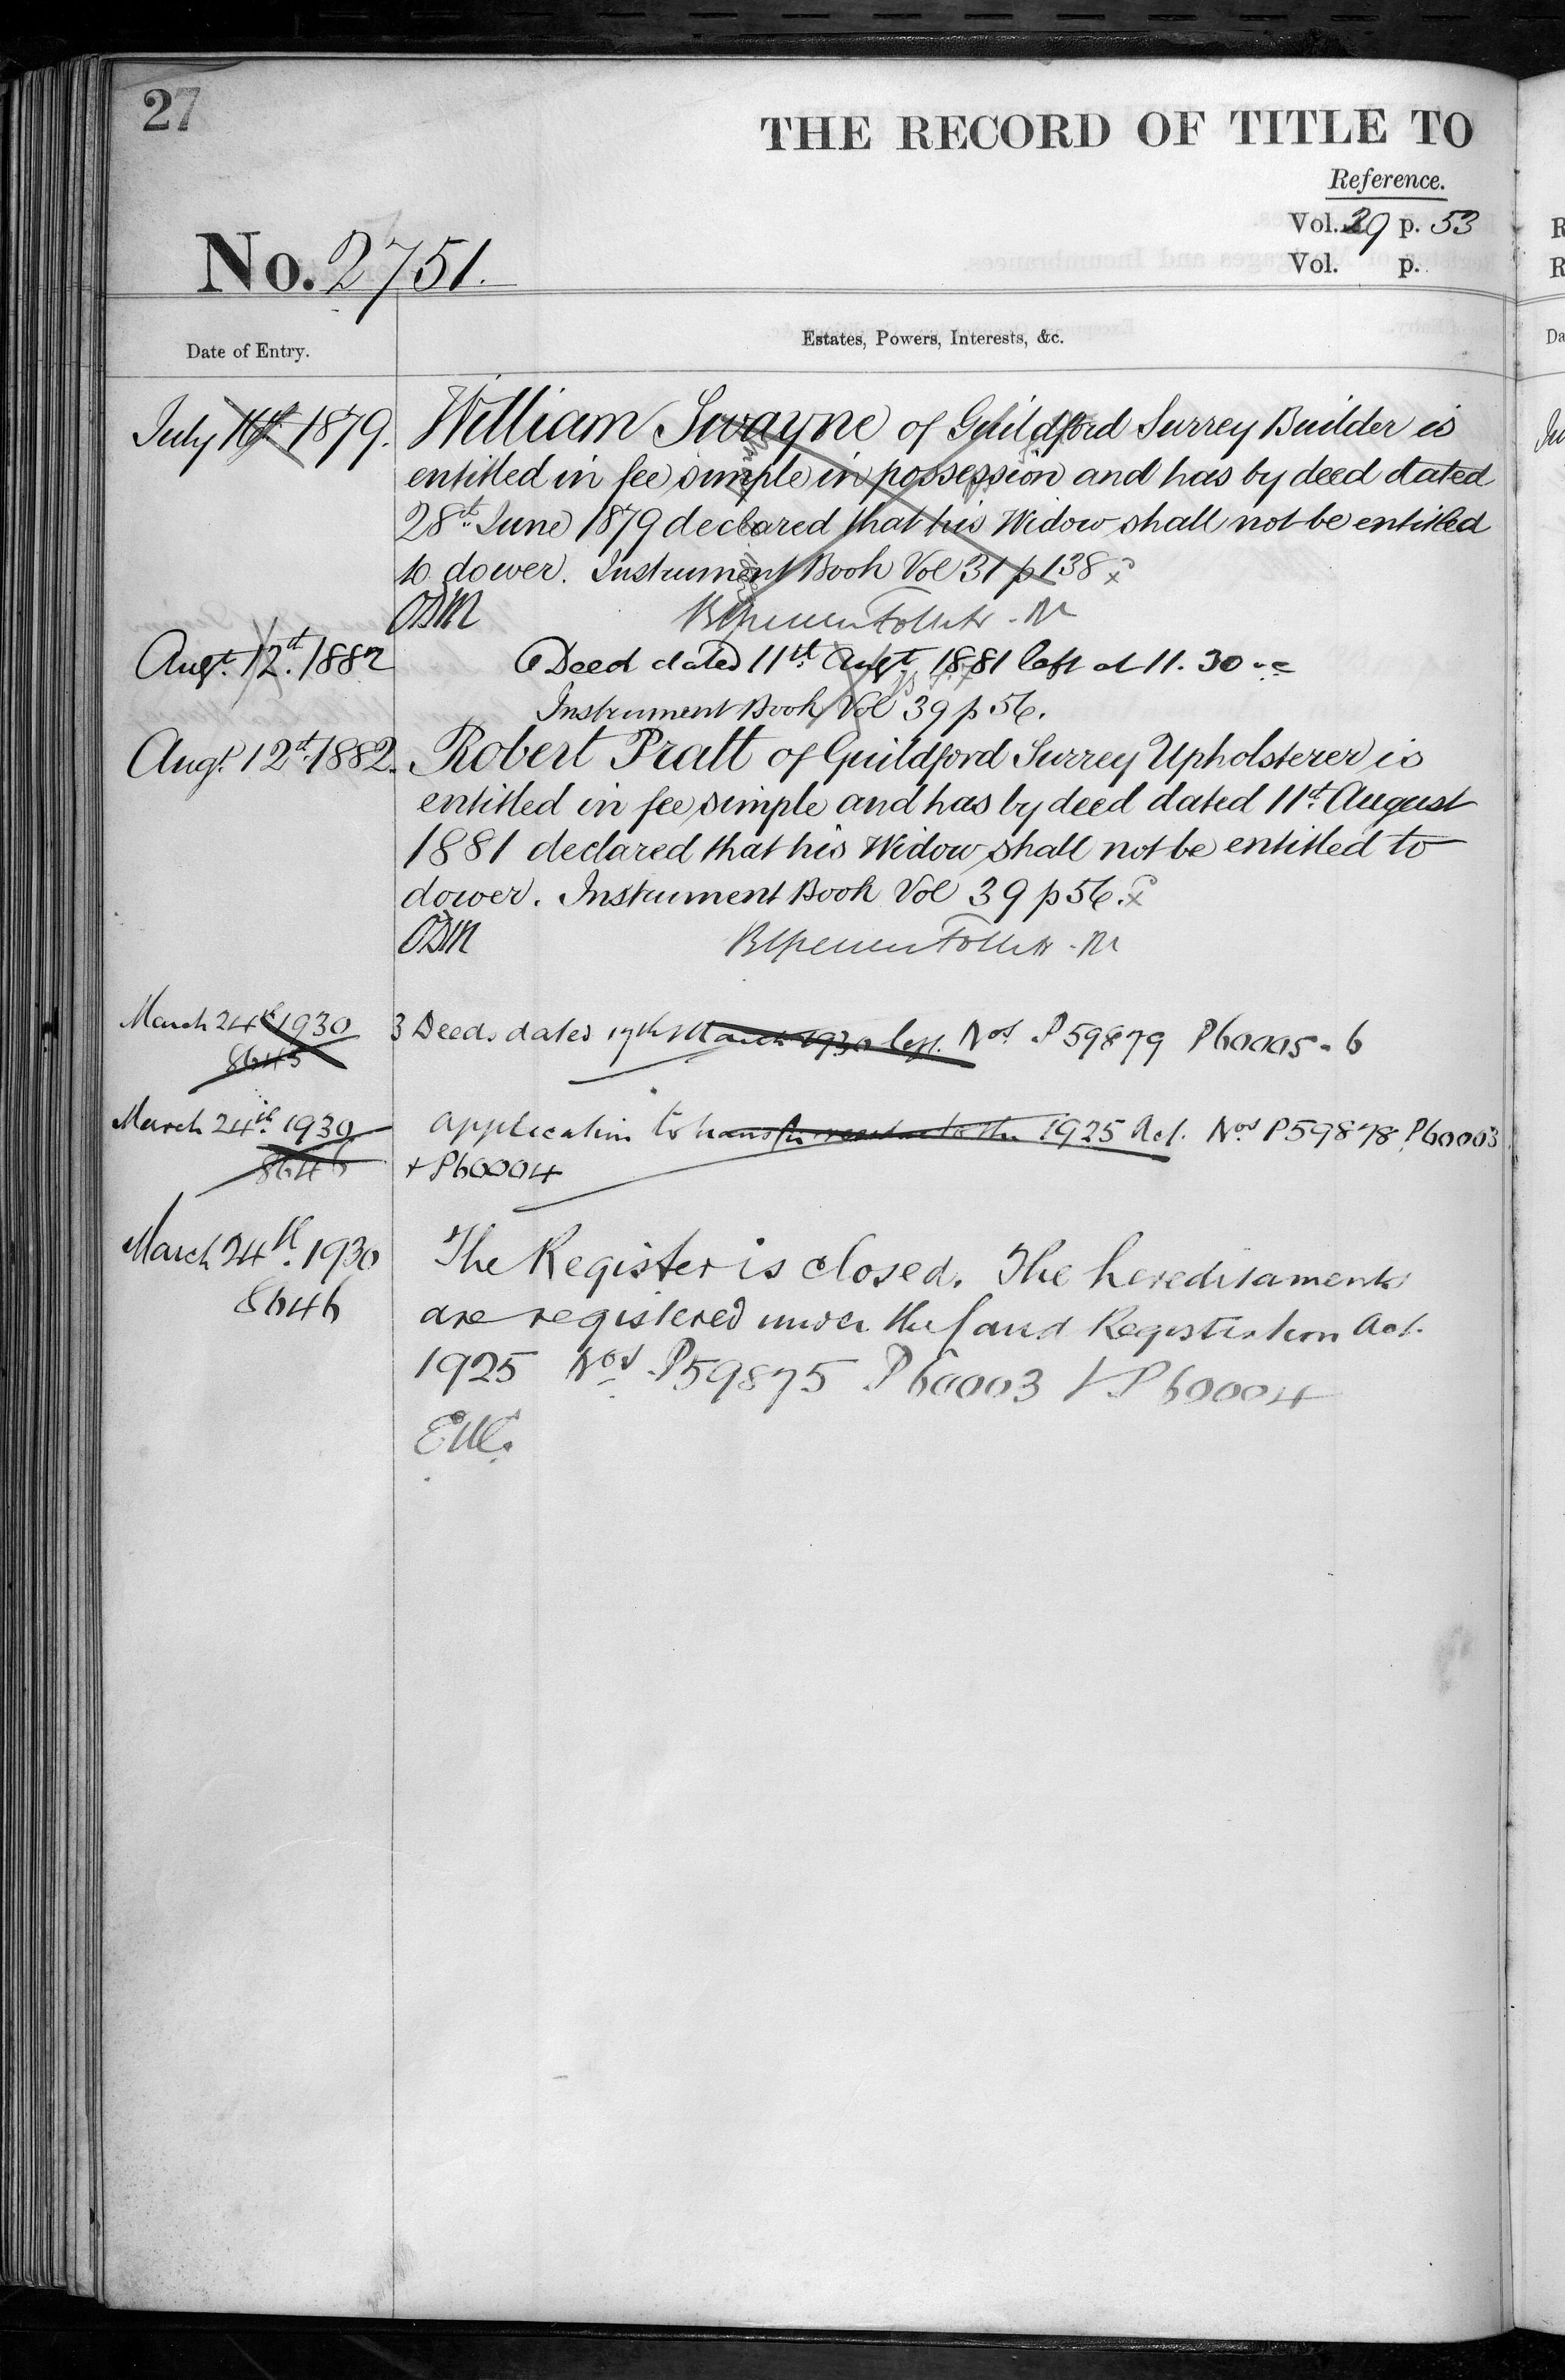 27
THE RECORD OF TITLE TO
Reference.
Vol. 29 p. 53
Vol. p.
No. 2751.
Date of Entry.
Estates, Powers, Interests, &c.
July 16th 1879. William Swayne of Guildford Surrey Builder is
entitled in fee simple in possession and has by deed dated
28th June 1879 declared that his Widow shall not be entitled
to dower. Instrument Book Vol 31 p 138
ODM
Augt. 12th. 1882 Deed dated 11th Augt. 1881 left at 11.30
Instrument Book Vol 39 p 56.
Augt. 12th 1882. Robert Pratt of Guildford Surrey Upholsterer is
entitled in fee simple and has by deed dated 11th August
1881 declared that his Widow shall not be entitled to
dower. Instrument Book Vol 39 p 56.
ODM
March 24th 1930 3 Deeds dated 17th March 1930 left. Nos P59879 P60005-6
8645
March 24th. 1930 Application to transfer to the 1925 Act. Nos P59878 P60003
8646 + P60004
March 24th. 1930 The Register is closed. The hereditaments
8646 are registered under the Land Registration Act.
1925 Nos P59875 P60003 + P60004